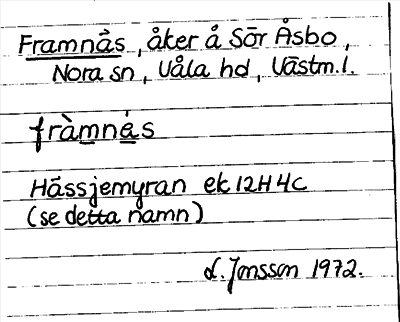 Framnås, åker å Sör Åsbo,
Nora sn, Våla hd, Västm.l.
fràmnás
Hässjemyran ek 12H4c
(se detta namn)
L. Jonsson 1972.